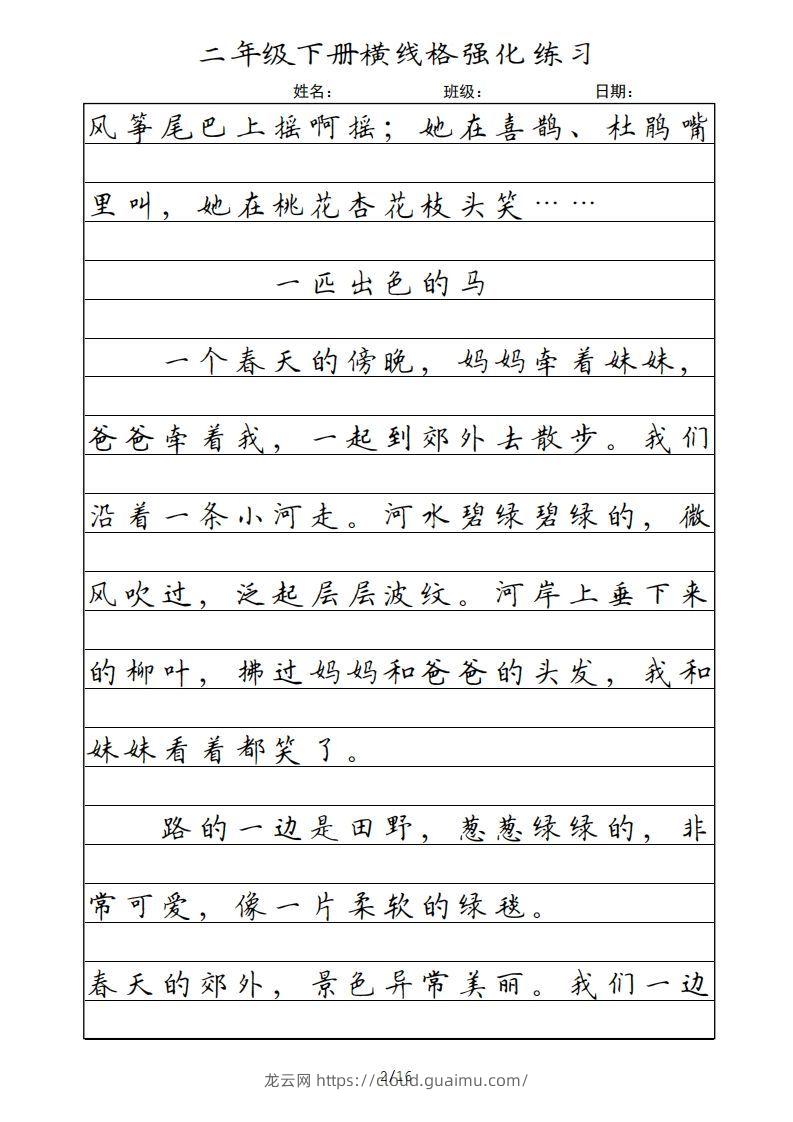 二年级下册横线格强化练习
姓名： 班级： 日期：
风筝尾巴上摇啊摇；她在喜鹊、杜鹃嘴
里叫，她在桃花杏花枝头笑……
一匹出色的马
一个春天的傍晚，妈妈牵着妹妹，
爸爸牵着我，一起到郊外去散步。我们
沿着一条小河走。河水碧绿碧绿的，微
风吹过，泛起层层波纹。河岸上垂下来
的柳叶，拂过妈妈和爸爸的头发，我和
妹妹看着都笑了。
路的一边是田野，葱葱绿绿的，非
常可爱，像一片柔软的绿毯。
春天的郊外，景色异常美丽。我们一边
2/16
龙云网 https://cloud.guaimu.com/